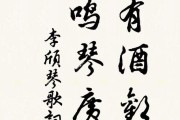 有酒歡
鳴琴廣
李頎琴歌